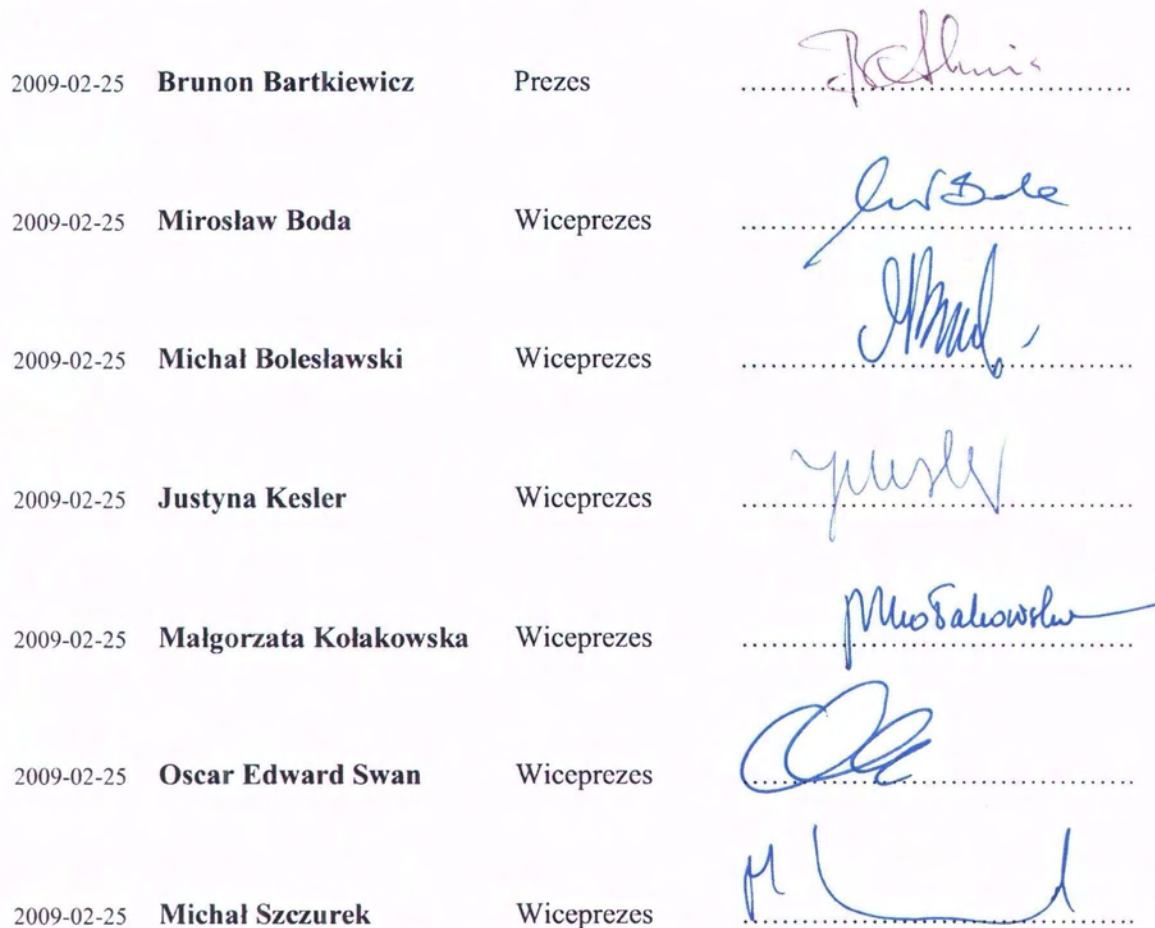 2009-02-25 Brunon Bartkiewicz Prezes ........................................
2009-02-25 Mirosław Boda Wiceprezes ........................................
2009-02-25 Michał Bolesławski Wiceprezes ........................................
2009-02-25 Justyna Kesler Wiceprezes ........................................
2009-02-25 Małgorzata Kołakowska Wiceprezes ........................................
2009-02-25 Oscar Edward Swan Wiceprezes ........................................
2009-02-25 Michał Szczurek Wiceprezes ........................................